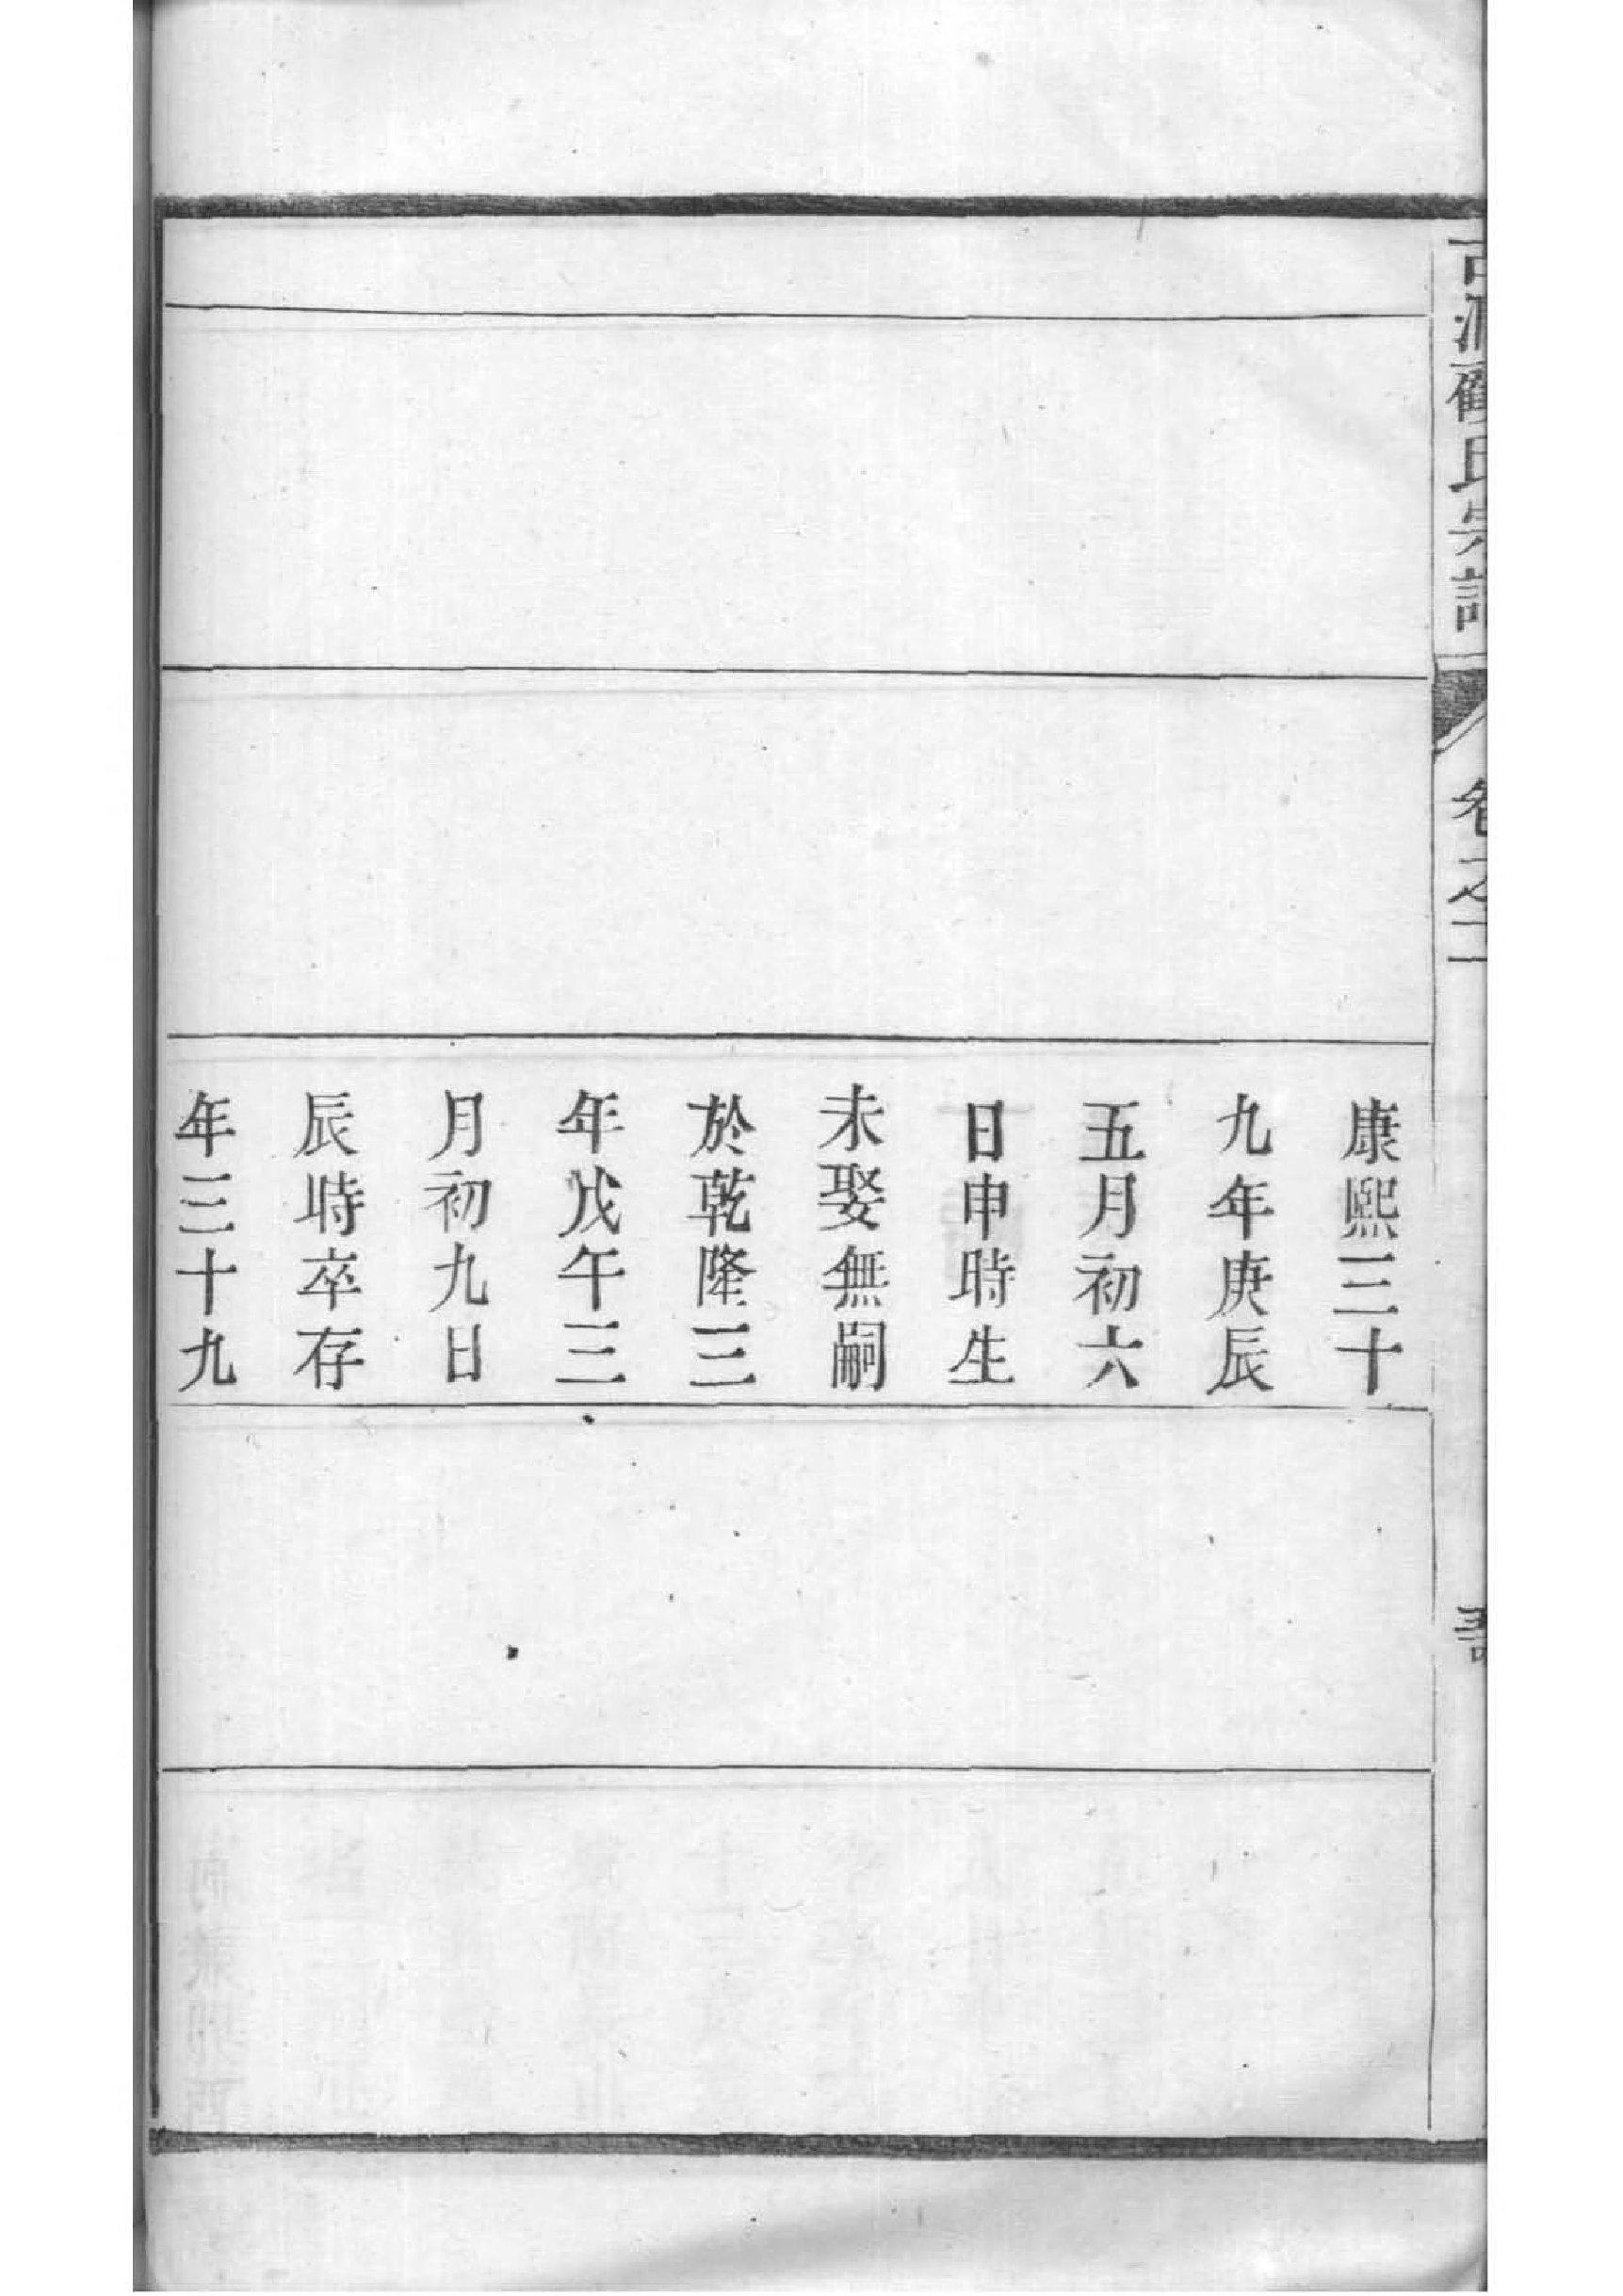 氏宗譜
卷之二
康熙三十
九年庚辰
五月初六
日申時生
未娶無嗣
於乾隆三
年戊午三
月初九日
辰時卒存
年三十九